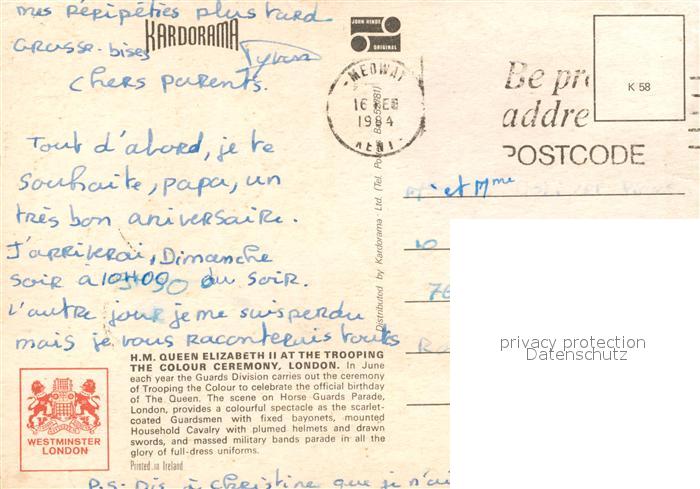 mes péripéties plus tard
Grosse-bises
KARDORAMA
JOHN HINDE
ORIGINAL
MEDWAY
16 FEB
1984
KENT
Be pr
addre
POSTCODE
K 58
chers parents.
Tout d'abord, je te
souhaite, papa, un
très bon aniversaire.
J'arriverai, Dimanche
soir à 10H00 du soir.
L'autre jour je me suis perdu
mais je vous raconterais touts
Distributed by Kardorama Ltd. (Tel. Potters Bar
et Mme
10
76
H.M. QUEEN ELIZABETH II AT THE TROOPING
THE COLOUR CEREMONY, LONDON. In June
each year the Guards Division carries out the ceremony
of Trooping the Colour to celebrate the official birthday
of The Queen. The scene on Horse Guards Parade,
London, provides a colourful spectacle as the scarlet-
coated Guardsmen with fixed bayonets, mounted
Household Cavalry with plumed helmets and drawn
swords, and massed military bands parade in all the
glory of full-dress uniforms.
Printed in Ireland
WESTMINSTER
LONDON
privacy protection
Datenschutz
P.S. Dis à Christine que je n'ai